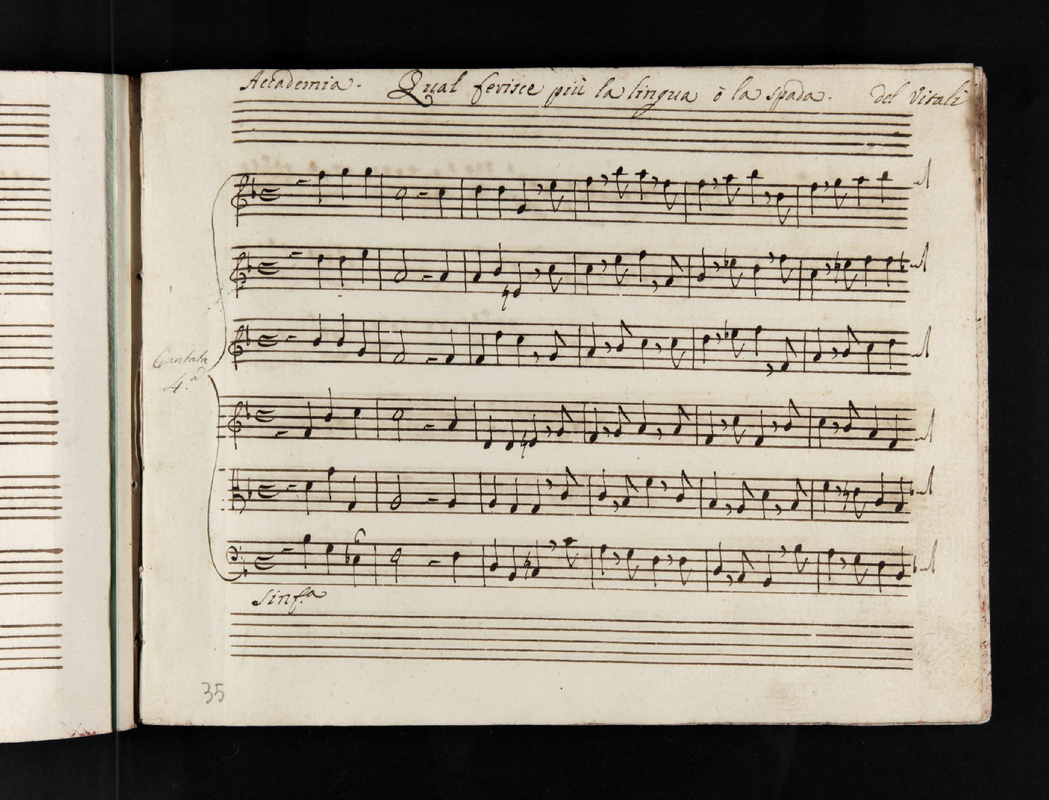 Accademia. Qual ferisce più la lingua ò la spada. del Vitali
Cantata
4.a
Sinf.a
35